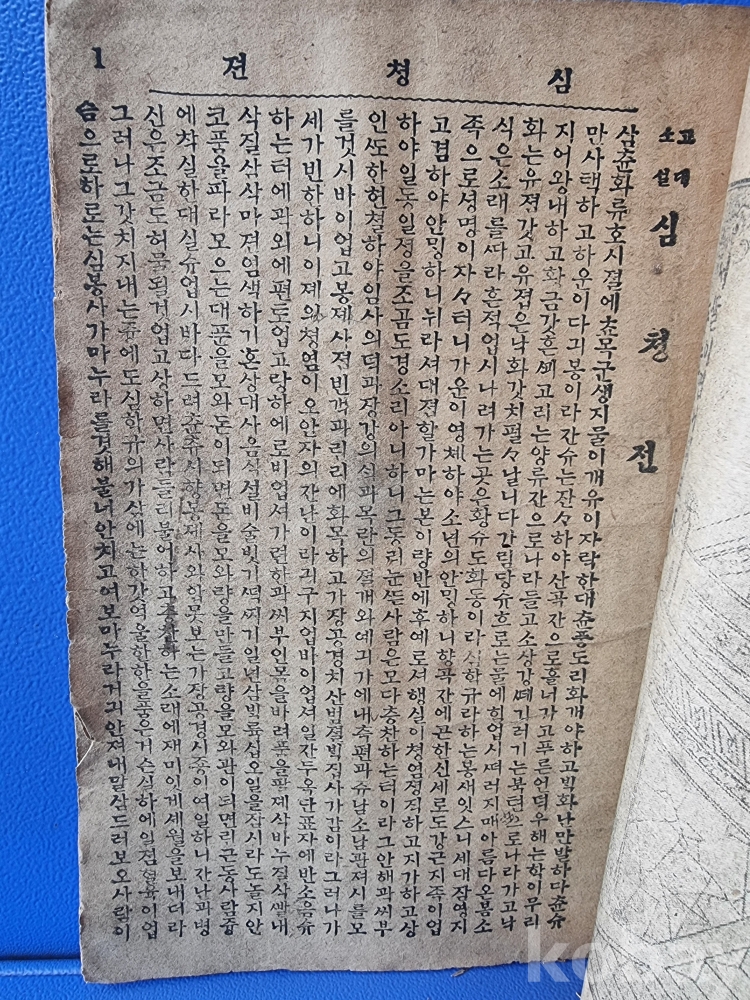 심쳥젼 1
고대소설
심청전
삼츈화류호시졀에초목군생지물이개유이자락한대츈풍도리화개야하고빅화난만발하다츈슈
만사택하고하운이다긔봉이라잔슈는잔々하야산곡잔으로흘너가고푸른언덕우헤는학이무리
지어왕내하고황금갓흔꾀고리는양류잔으로나라들고소상강떼기러기는북텬으로나라가고낙
화는유졉갓고유졉은낙화갓치펄々날니다간림당슈흐르는물에힘업시떠러지매아름다온봄소
식은소래를따라흔적업시나려가는곳은황쥬도화동이라심학규라하는봉새잇스니세대잠영지
족으로셩명이자々터니가운이영체하야소년의안밍하니향곡잔에곤한신세로도강근지족이업
고겸하야안밍하니뉘라셔대졉할가마는본이량반에후예로셔행실이청염졍직하고지가하고상
하야일동일졍을조곰도경소리아니하니그동리눈뜬사람은모다층찬하는터이라그안해곽씨부
인또한현철하야임사의덕과장강의색과목란의졀개와예긔가에내측편과쥬남소남관져시를모
를것시바이업고봉제사졉빈객과린리에화목하고가장공경치산범졀빅집사가감이라그러나가
세가빈한하니이제의청염이오안자의간난이라긔구지업바이업셔일간두옥단표자에반소음슈
하는터에곽외에편토업고랑하에로비업셔가련한곽씨부인몸을바려품을팔제삭바누질삭빨내
삭질삭삭마젼염색하기혼상대사음식셜비술빗기떡찌기일년삼빅륙십오일을잠시라도놀지안
코품을파라모으는대푼을모와돈이되면돈을모와량을만들고량을모와관이되면린근동사람즁
에착실한대실슈업시바다드려츈추시향봉제사와압못보는가장공경시종이여일하니간난과병
신은조금도허물될거업고상하면사람들리불어하고층찬하는소래에재미잇게세월을보내더라
그러나그갓치지내는쥬에도심학규의가삼에는하갸엽울한한을품은거슨실하에일졈혈육이업
슴으로하로는심봉사가마누라를겻헤불너안치고여보마누라거긔안져내말삼드러보오사람이